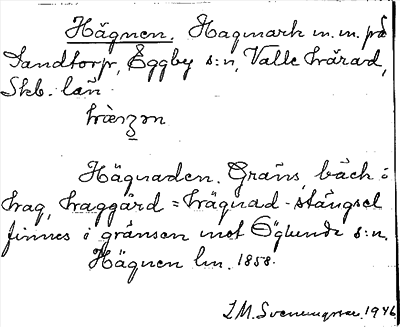 Hägnen. Hagmark m.m. på
Sandtorp, Eggby s:n, Valle härad,
Skb. län

Hägnaden. Gräns, bäck i
hag, haggård = hägnad - stängsel
finnes i gränsen mot Öglunda s:n.
Hägnen lm. 1858.
1946